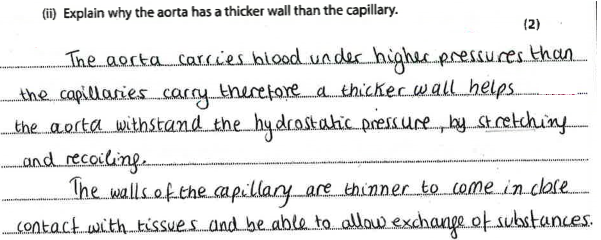 (ii) Explain why the aorta has a thicker wall than the capillary.
(2)
The aorta carries blood under higher pressures than
the capillaries carry therefore a thicker wall helps
the aorta withstand the hydrostatic pressure, by stretching
and recoiling.
The walls of the capillary are thinner to come in close
contact with tissues and be able to allow exchange of substances.